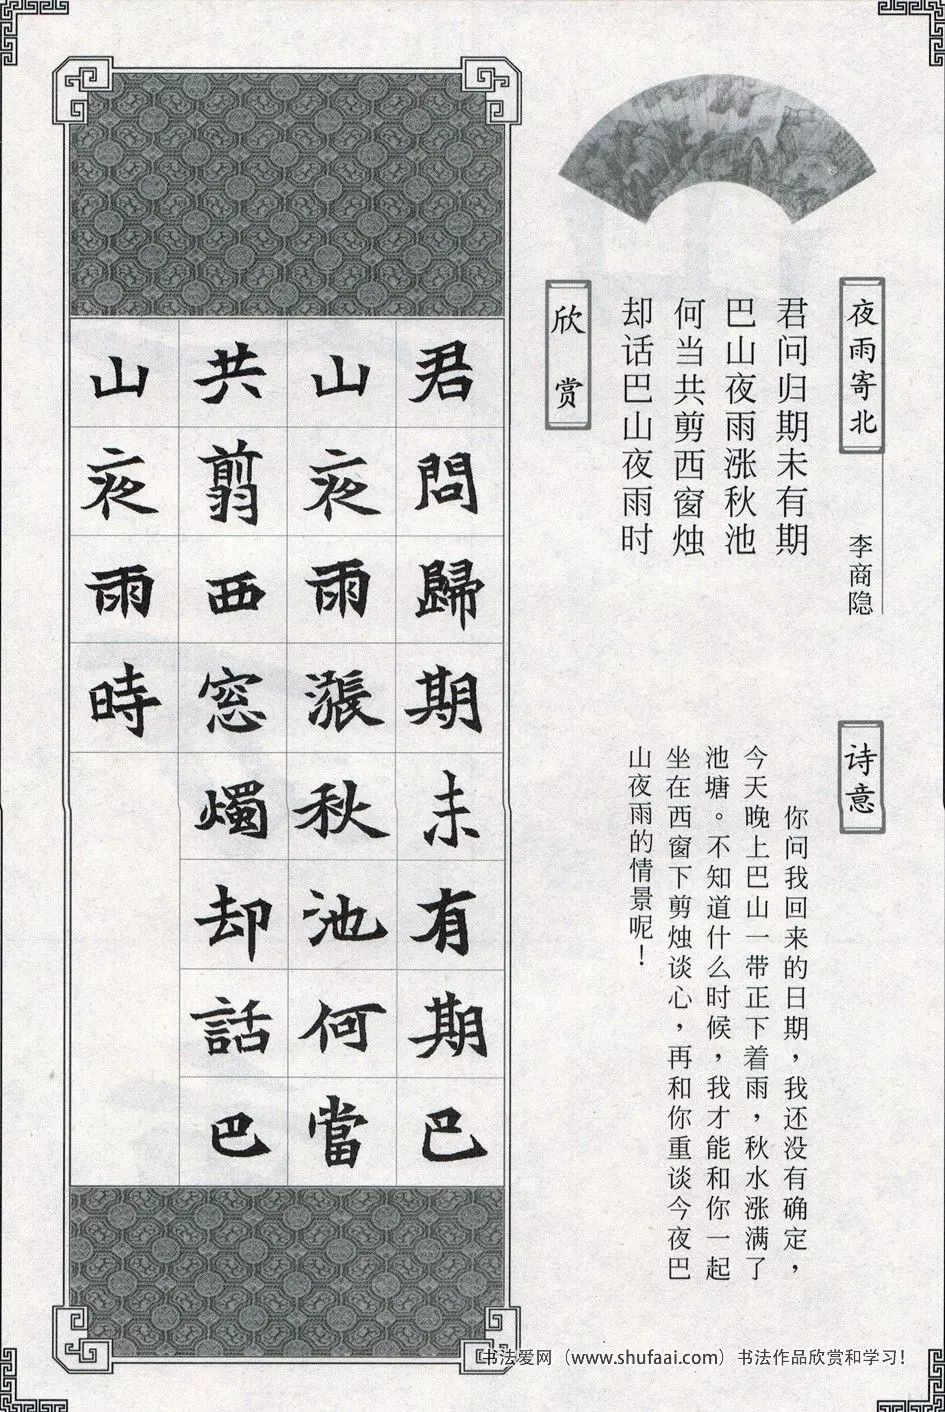 夜雨寄北
李商隐
君问归期未有期
巴山夜雨涨秋池
何当共剪西窗烛
却话巴山夜雨时
诗意
你问我回来的日期，我还没有确定，
今天晚上巴山一带正下着雨，秋水涨满了
池塘。不知道什么时候，我才能和你一起
坐在西窗下剪烛谈心，再和你重谈今夜巴
山夜雨的情景呢！
欣赏
君問歸期未有期巴
山夜雨漲秋池何當
共剪西窓燭却話巴
山夜雨時
书法爱网（www.shufaai.com）书法作品欣赏和学习！